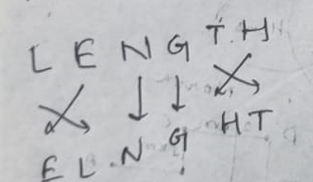 L E N G T H
E L N G H T